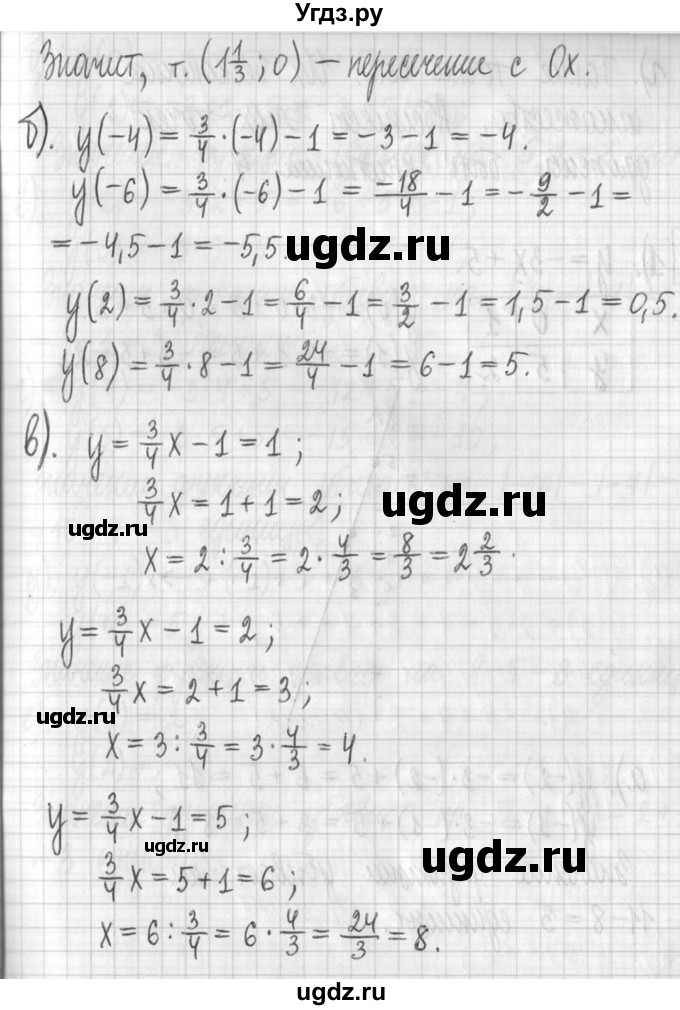 Угдз.ру
Значит, т. (1 1/3 ; 0) – пересечение с Ох.
б). y(-4) = 3/4 · (-4) - 1 = -3 - 1 = -4.
y(-6) = 3/4 · (-6) - 1 = -18/4 - 1 = -9/2 - 1 =
= -4,5 - 1 = -5,5.
ugdz.ru
y(2) = 3/4 · 2 - 1 = 6/4 - 1 = 3/2 - 1 = 1,5 - 1 = 0,5.
y(8) = 3/4 · 8 - 1 = 24/4 - 1 = 6 - 1 = 5.
в). y = 3/4 x - 1 = 1 ;
3/4 x = 1 + 1 = 2 ;
ugdz.ru
ugdz.ru
x = 2 : 3/4 = 2 · 4/3 = 8/3 = 2 2/3 .
y = 3/4 x - 1 = 2 ;
3/4 x = 2 + 1 = 3 ;
ugdz.ru
x = 3 : 3/4 = 3 · 4/3 = 4.
y = 3/4 x - 1 = 5 ;
ugdz.ru
ugdz.ru
3/4 x = 5 + 1 = 6 ;
x = 6 : 3/4 = 6 · 4/3 = 24/3 = 8.
ugdz.ru